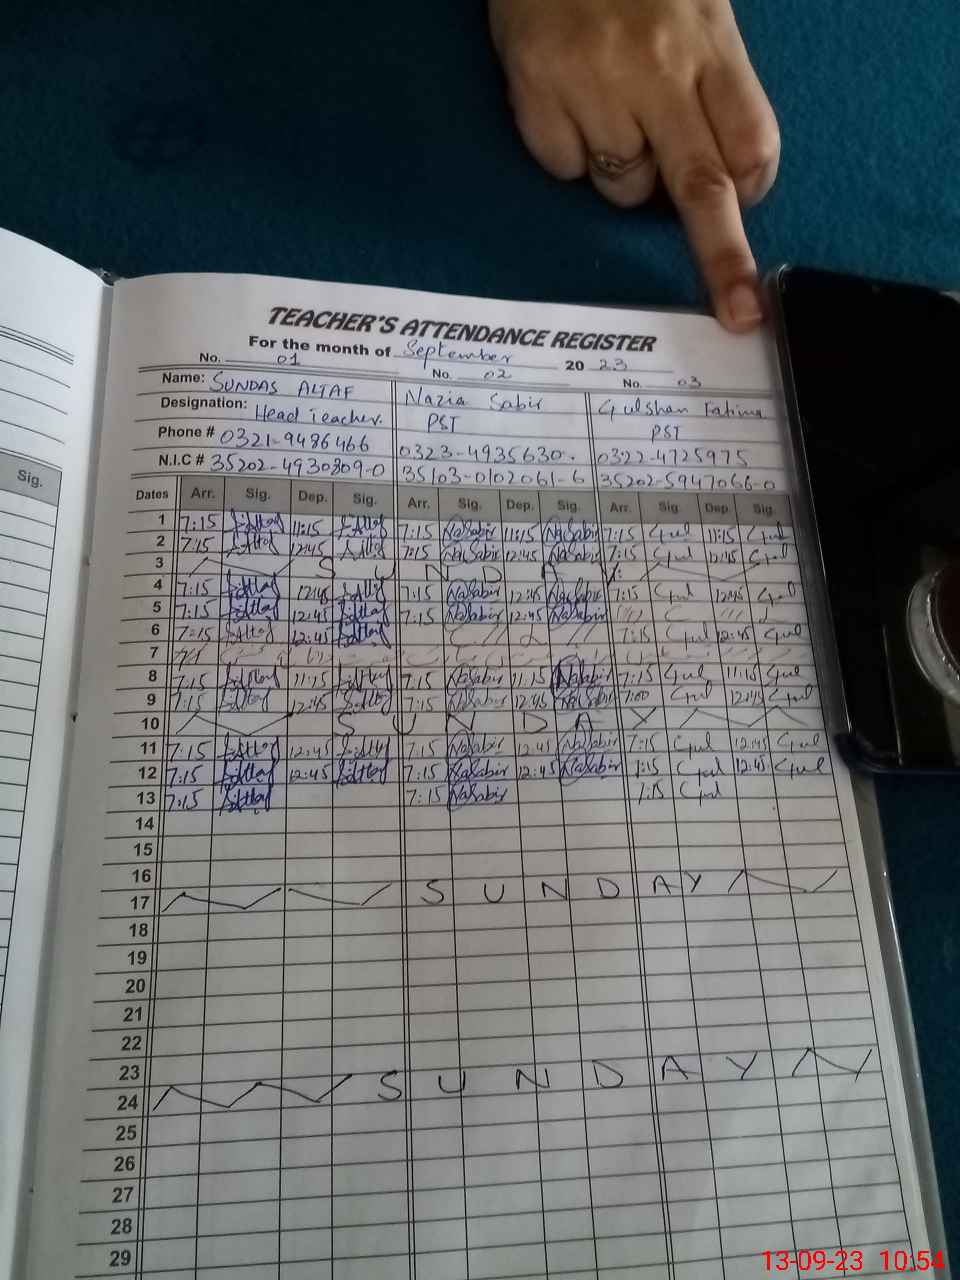 TEACHER'S ATTENDANCE REGISTER
For the month of September 20 23
No. 01 No. 02 No. 03
Name: SUNDAS ALTAF Nazia Sabir Gulshan Fatima
Designation: Head Teacher. PST PST
Phone # 0321-9486466 0323-4935630. 0322-4725975
N.I.C # 35202-4930809-0 35103-0102061-6 35202-5947066-0
Sig.
Dates Arr. Sig. Dep. Sig. Arr. Sig. Dep. Sig. Arr. Sig. Dep. Sig.
1 7:15 11:15 7:15 NaSabir 11:15 NaSabir 7:15 Gul 11:15 Gul
2 7:15 12:45 7:15 NaSabir 12:45 NaSabir 7:15 Gul 12:45 Gul
3 S U N D A Y
4 7:15 12:45 7:15 NaSabir 12:45 NaSabir 7:15 Gul 12:45 Gul
5 7:15 12:45 7:15 NaSabir 12:45 NaSabir
6 7:15 12:45 7:15 Gul 12:45 Gul
7
8 7:15 11:15 7:15 NaSabir 11:15 NaSabir 7:15 Gul 11:15 Gul
9 7:15 12:45 7:15 NaSabir 12:45 NaSabir 7:00 Gul 12:45 Gul
10 S U N D A Y
11 7:15 12:45 7:15 NaSabir 12:45 NaSabir 7:15 Gul 12:45 Gul
12 7:15 12:45 7:15 NaSabir 12:45 NaSabir 7:15 Gul 12:45 Gul
13 7:15 7:15 NaSabir 7:15 Gul
14
15
16
17 S U N D A Y
18
19
20
21
22
23
24 S U N D A Y
25
26
27
28
29
13-09-23 10:54